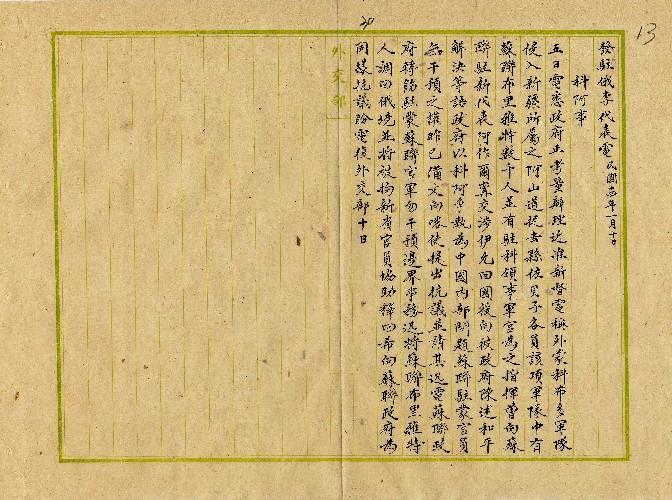 20
13
發駐俄李代表電民國十四年一月十日
科阿事
五日電悉政府正考量辦理近准新督電稱外蒙科布多軍隊
侵入新疆所屬之阿山道捉去縣佐員子各員該項軍隊中有
蘇聯布里雅特數千人並有駐科領事軍官為之指揮曾向蘇
聯駐新代表阿作爾業交涉伊允回國後向彼政府陳述和平
解決等語政府以科阿事為中國內部問題蘇聯駐蒙官員
無干預之權昨已備文向喀使提出抗議並請其迅電蘇聯政
府轉飭駐蒙蘇聯官軍勿干預邊界事務迅將蘇聯布里雅特
人調回俄境並將被拘新省官員協助釋回希向蘇聯政府為
同樣抗議盼電復外交部十日
外交部